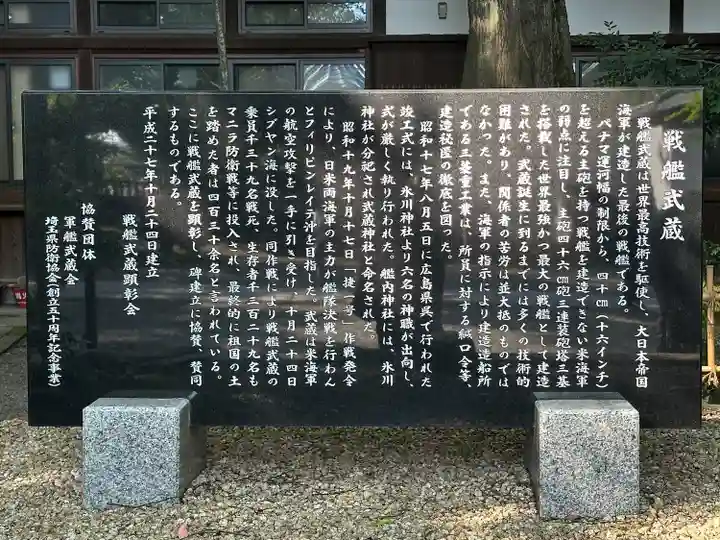 戦艦武蔵
戦艦武蔵は世界最高技術を駆使し、大日本帝国
海軍が建造した最後の戦艦である。
パナマ運河幅の制限から、四十㎝(十六インチ)
を超える主砲を持つ戦艦を建造できない米海軍
の弱点に注目し、主砲四十六㎝砲三連装砲塔三基
を搭載した世界最強かつ最大の戦艦として建造
された。武蔵誕生に到るまでには多くの技術的
困難があり、関係者の苦労は並大抵のものでは
なかった。また、海軍の指示により建造造船所
である三菱重工業は、所員に対する緘口令等、
建造秘匿の徹底を図った。
昭和十七年八月五日に広島県呉で行われた
竣工式には、氷川神社より六名の神職が出向し、
式が厳しく執り行われた。艦内神社には、氷川
神社が分祀され武蔵神社と命名された。
昭和十九年十月十七日「捷一号」作戦発令
により、日米両海軍の主力が艦隊決戦を行わん
とフィリピンレイテ沖を目指した。武蔵は米海軍
の航空攻撃を一手に引き受け、十月二十四日
シブヤン海に没した。同作戦により戦艦武蔵の
乗員千三十九名戦死、生存者千三百二十九名も
マニラ防衛戦等に投入され、最終的に祖国の土
を踏めた者は四百三十余名と言われている。
ここに戦艦武蔵を顕彰し、碑建立に協賛、賛同
するものである。
平成二十七年十月二十四日建立
戦艦武蔵顕彰会
協賛団体
軍艦武蔵会
埼玉県防衛協会(創立五十周年記念事業)